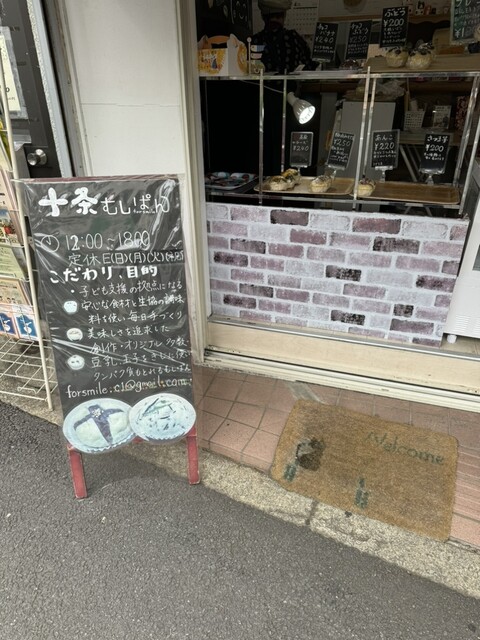 十条むしぱん
12:00~18:00
定休日(日)(月)(火)
こだわり、目的
子ども支援の拠点になる
安心な食材と生協の調味
料を使い毎日手づくり
美味しさを追求した
創作・オリジナル多数
豆乳、玉子をきした使い
タンパク質もとれるむしぱん
forsmile.c1@gmail.com
Welcome
ぶどう
¥200
¥250
¥250
あんこ
¥220
さつま芋
¥200